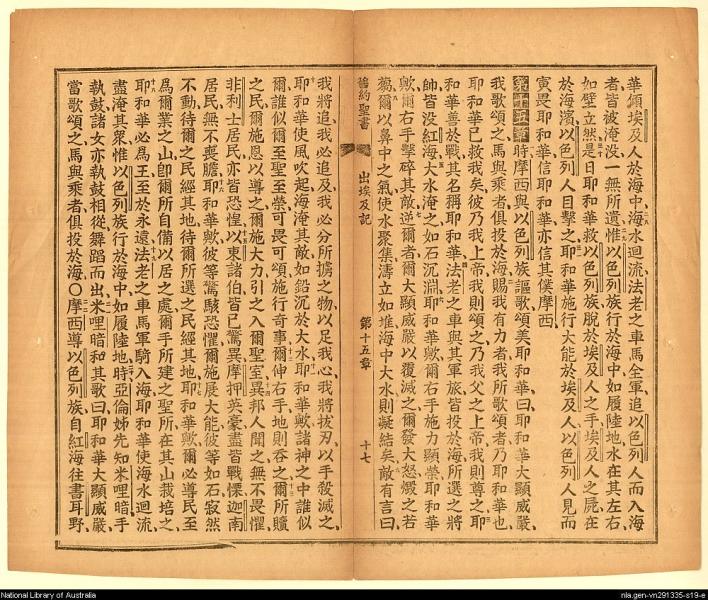 華傾埃及人於海中海水迴流法老之車馬全軍追以色列人而入海
者皆被淹没一無所遺惟以色列族行於海中如履陸地水在其左右
如壁立然是日耶和華救以色列族脫於埃及人之手埃及人之屍在
於海濱以色列人目擊之耶和華施行大能於埃及人以色列人見而
寅畏耶和華信耶和華亦信其僕摩西
第十五章時摩西與以色列族謳歌頌美耶和華曰耶和華大顯威嚴
我歌頌之馬與乘者俱投於海賜我有力者我所歌頌者乃耶和華也
耶和華已救我矣彼乃我上帝我則頌之乃我父之上帝我則尊之耶
和華善於戰其名稱耶和華法老之車與其軍旅皆投於海所選之將
帥皆没紅海大水淹之如石沉淵耶和華歟爾右手施力顯榮耶和華
歟爾右手擊碎其敵逆爾者爾大顯威嚴以覆滅之爾發大怒燬之若
爾以鼻中之氣使水聚集濤立如堆海中大水則凝結矣敵有言曰
舊約聖書 出埃及記 第十五章 十七
我將追我必追及我必分所擄之物以足我心我將拔刃以手殺滅之
耶和華使風吹起海淹其敵如鉛沉於大水耶和華歟諸神之中誰似
爾誰似爾至聖至榮可畏可頌施行奇事爾伸右手地則吞之爾所贖
之民爾施恩以導之爾施大力引之入爾聖室異邦人聞之無不畏懼
非利士居民亦皆恐惶以東諸伯皆已驚異摩押英豪盡皆戰慄迦南
居民無不喪膽耶和華歟彼等驚駭恐懼爾施展大能彼等如石寂然
不動待爾之民經其地待爾所選之民經其地耶和華歟爾必導民至
爲爾業之山卽爾所自備以居之處爾手所建之聖所在其山栽培之
耶和華必爲王至於永遠法老之車馬軍騎入海耶和華使海水迴流
盡淹其衆惟以色列族行於海中如履陸地時亞倫姊先知米哩暗手
執鼓諸女亦執鼓相從舞蹈而出米哩暗和其歌曰耶和華大顯威嚴
當歌頌之馬與乘者俱投於海○摩西導以色列族自紅海往書耳野
National Library of Australia
nla.gen-vn291335-s19-e